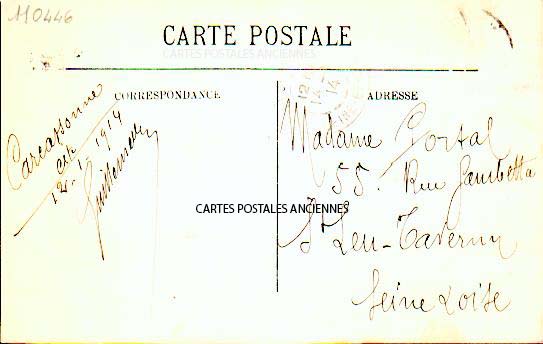 110446
CARTE POSTALE
CARTES POSTALES ANCIENNES
CORRESPONDANCE
Carcassonne
12-1-1914
CARTES POSTALES ANCIENNES
ADRESSE
Madame Portal
55 Rue Gambetta
St Leu-Taverny
Seine & Oise